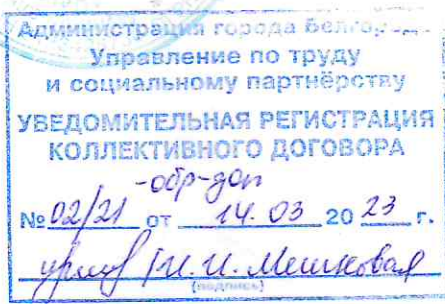 Администрация города Белгорода
Управление по труду
и социальному партнёрству
УВЕДОМИТЕЛЬНАЯ РЕГИСТРАЦИЯ
КОЛЛЕКТИВНОГО ДОГОВОРА
-обр-доп
№ 02/21 от 14. 03 20 23 г.
И. И. Мешковая
(подпись)